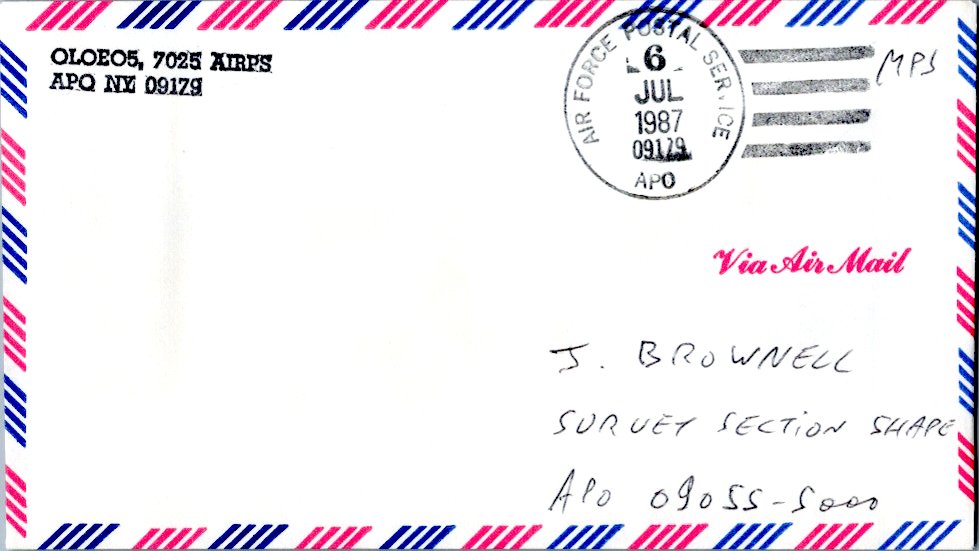 OLOEO5, 7025 AIRPS
APO NY 09179
AIR FORCE POSTAL SERVICE
6
JUL
1987
09179
APO
MPS
Via Air Mail
J. BROWNELL
SURVEY SECTION SHAPE
APO 09055-5000